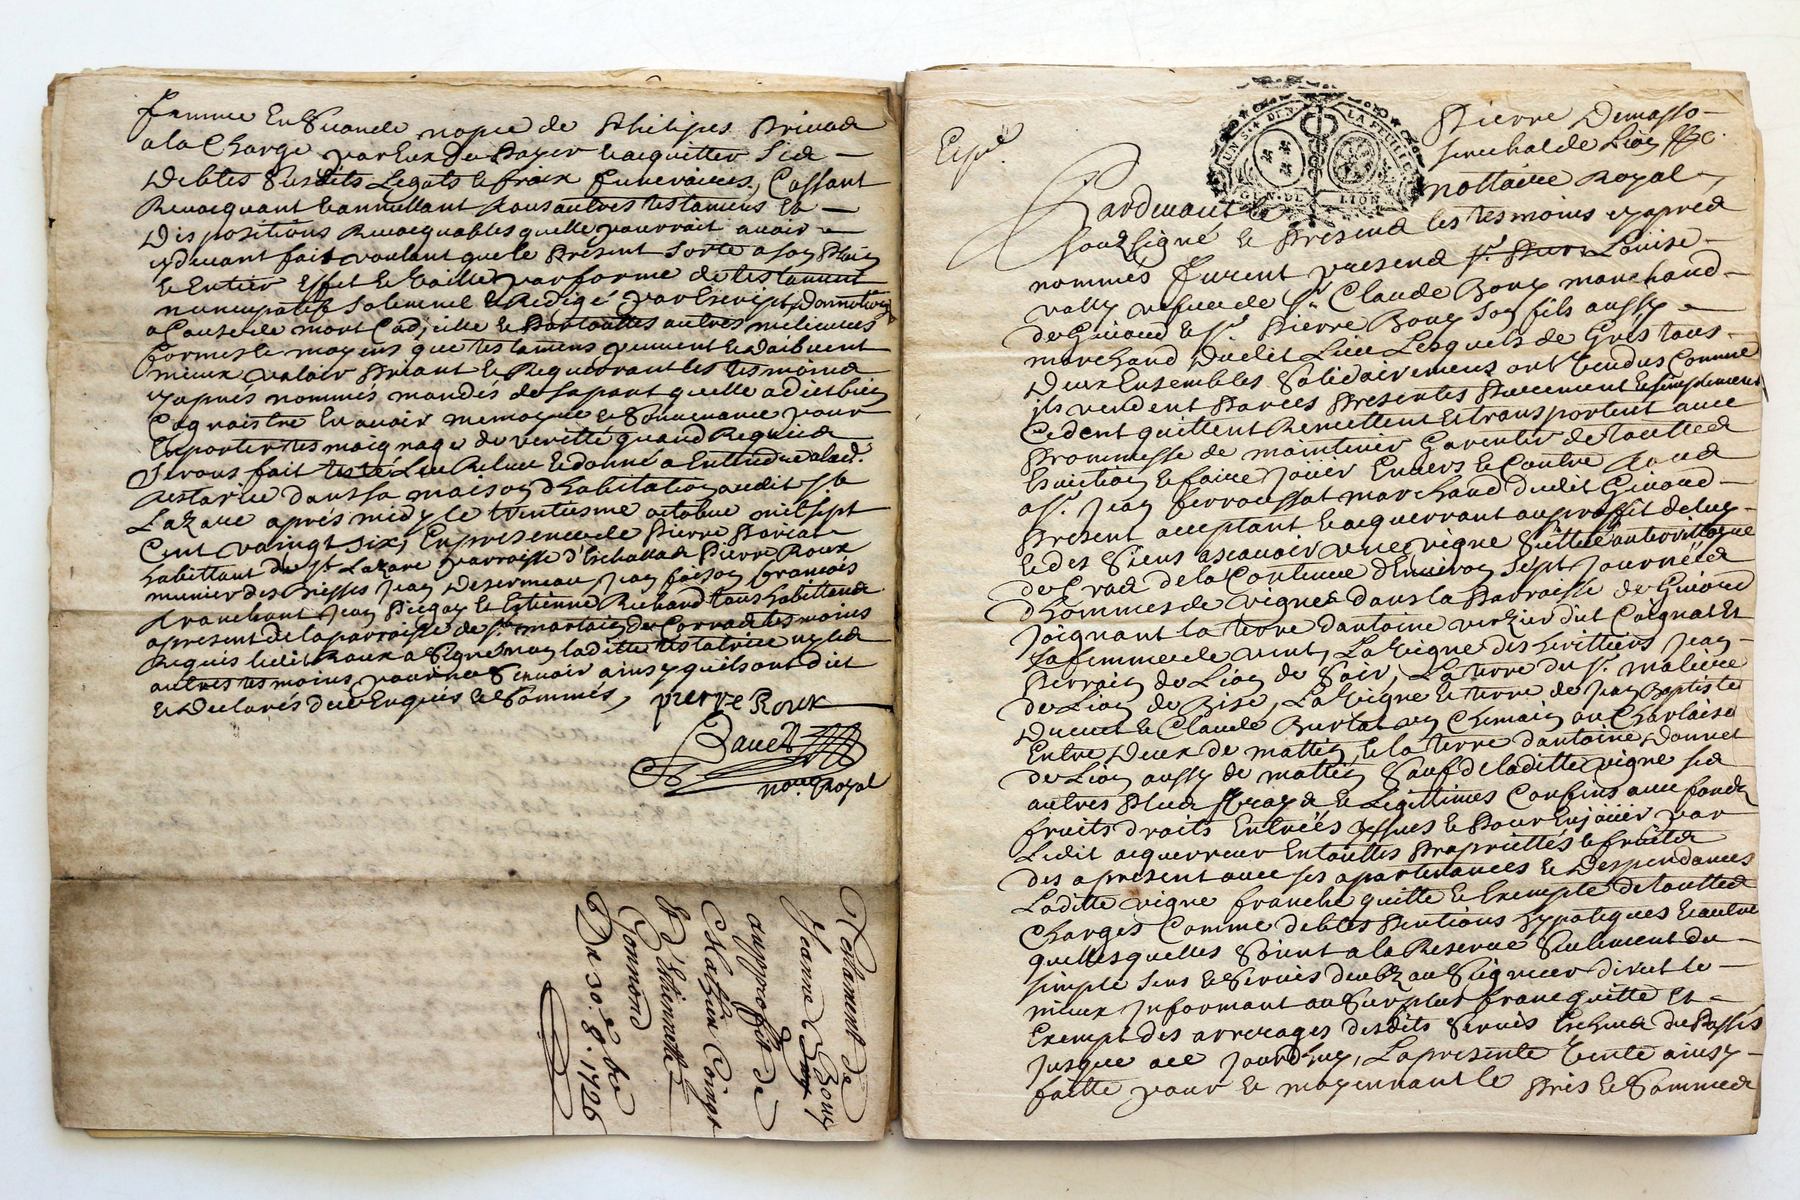 femme En Seconde nopce de Philipes Brivad
a la Charge par Eux de Payer & acquitter Sed
Debtes Susdits Legats & fraix funeraires, Cassant
Revocquant & annullant tous autres testamens Et
Dispositions Revocquables quelle pourrait avoir
cydevant fait voulant que le Present Sorte a son Plain
& Entier Effet & vaille par forme de testament
nuncupatif Solemnel & Redigé par Escript donnation
a Cause de mort Codicille & Par touttes autres meilieures
formes & moyens que testamens peuvent & doibvent
mieux valoir Priant & Requerant les tesmoins
cyapres nommés mandés de sa part quelle a dit bien
Cognoistre En avoir memoyre & Souvenance pour
En porter tesmoignage de verité quand Requis
Seront fait Leu Releue & donné a Entendre a lad.
testatrice dans sa maison d'habitation audit St
Lazare aprés midy le trentiesme octobre mil sept
Cent vaingt six, En presence de Pierre
habittant du St Lazare parroisse d'Eschallas Pierre Roux
munier des Jean Jean faison francois
tranchant Jean & Estienne Richard tous habittans
a present de la parroisse de St. martain de Cornas tesmoins
Requis ledit Roux a Signé non laditte testatrice ny les
autres tesmoins pour ne Scavoir ainsy quils ont dict
& Declarés de ce Enquis & Sommés, pierre Roux
no.re Royal
Testament de
Jeanne Bouy
au proffit de
Mathieu
& d'Etiennette
Gonnond
Du 30.e 8.bre
1726
Exp.é
GEN. DE LION
LA FEUILLE
Pierre Demasso
senechal de Lion &c.
Pardevant le nottaire Royal
Soubsigné & Presend les tesmoins cyapred
nommés furent presend Louise
vally vefue de Sr. Claude Bouy marchand
de Givord & Sr. Pierre Bouy Son fils aussy
marchand dudit Lieu Lesquels de Gres tous
Deux Ensembles Solidairement ont Vendus Comme
ils vendent Par ces Presentes Purement & simplement
Cedent quittent Remettent & transportent avec
Prommesse de maintenir Garentir de touttes
Esviction & faire Joüir Envers & Contre tous
a Sr. Jean ferroussat marchand dudit Givord
Present acceptant & acquerrant au proffit de luy
& des Siens ascavoir une vigne Sittuée au territoyre
de Crad de la Contenue d'Environ Sept Journées
d'hommes de vigne dans la Parroisse de Givord
Joignant la terre d'antoine verzier dit Coignat Et
sa femme de vent, La Vigne des heritiers Jean
Perrain de Lion de Soir, La terre du Sr. maliere
de Lion de Bise, La Vigne & terre de Jean Baptiste
Ducret & Claude Burlat un Chemain
Entre Deux de mattin & la terre d'antoine Donnet
de Lion aussy de mattin Sauf de laditte vigne sed
autres Plus vrays & Legittimes Confins avec fonds
fruits droits Entrées yssues & Pour En joüir par
Ledit acquerreur En touttes Proprietés & fruits
des a present avec ses apartenances & Despendances
Laditte vigne franche quitte & Exempte de touttes
Charges Comme debtes Pentions hypoteques & autre
quelles quelles Soient a la Reserve Seulement du
simple Sens & Servis deubz au Seigneur direct le
mieux Informant au Surplus franc quitte Et
Exempt des arrerages desdits Servis Escheus du Passés
Jusque a ce Jourdhuy, La presente Vente ainsy
faitte pour & moyennant le Pris & Somme de